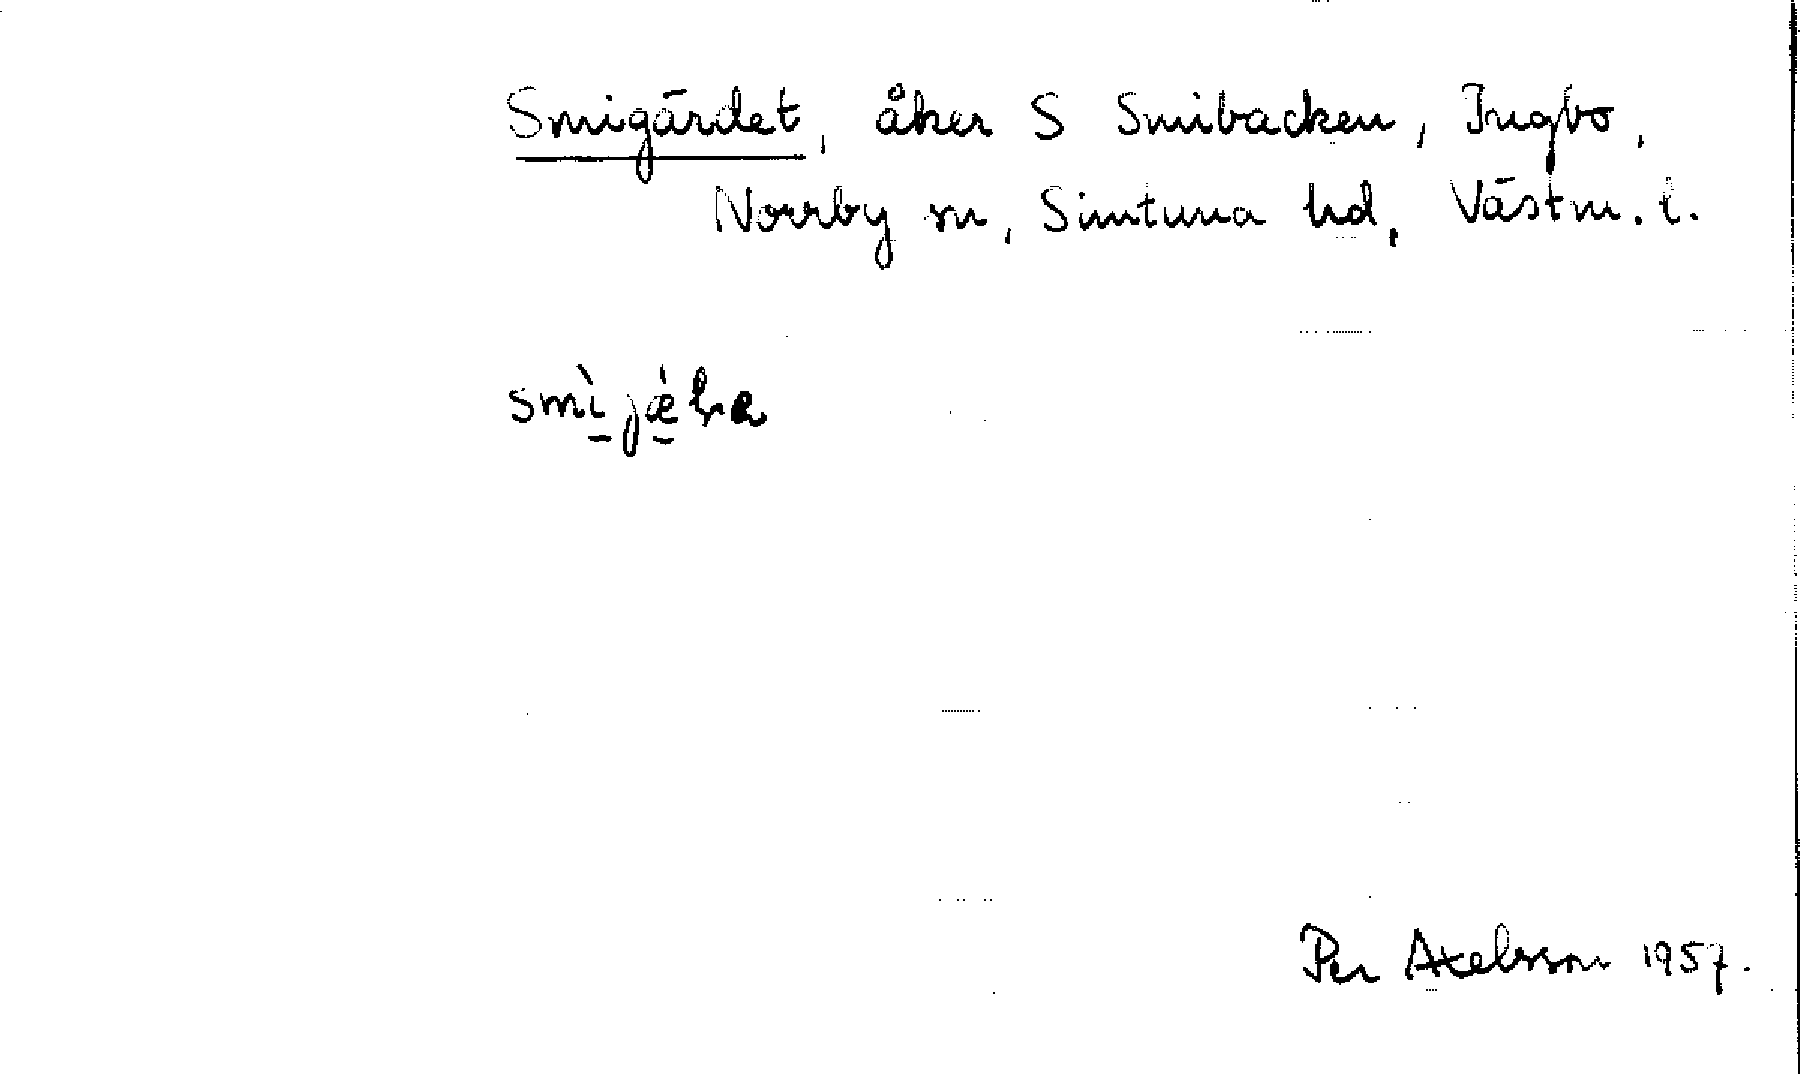 Smigärdet, åker S Smibacken, Ingbo,
Norrby sn, Simtuna hd, Västm. l.
Per Axelsson 1957.